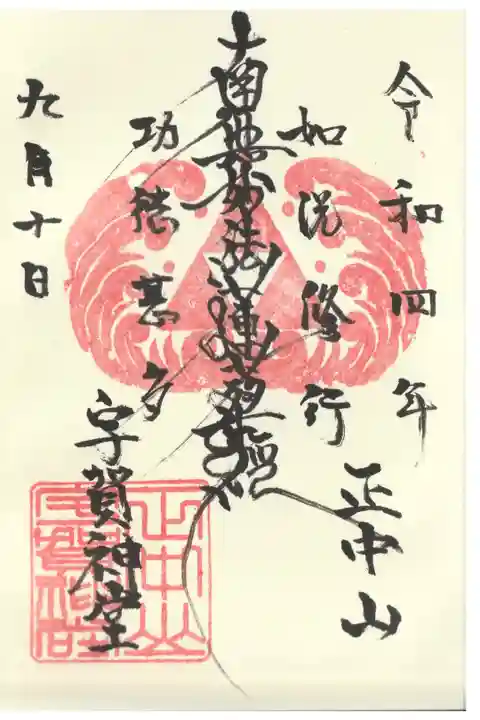 令和四年
正中山
如説修行
南無妙法蓮華経
功徳甚多
宇賀神堂
九月十日
正中山
宇賀神堂